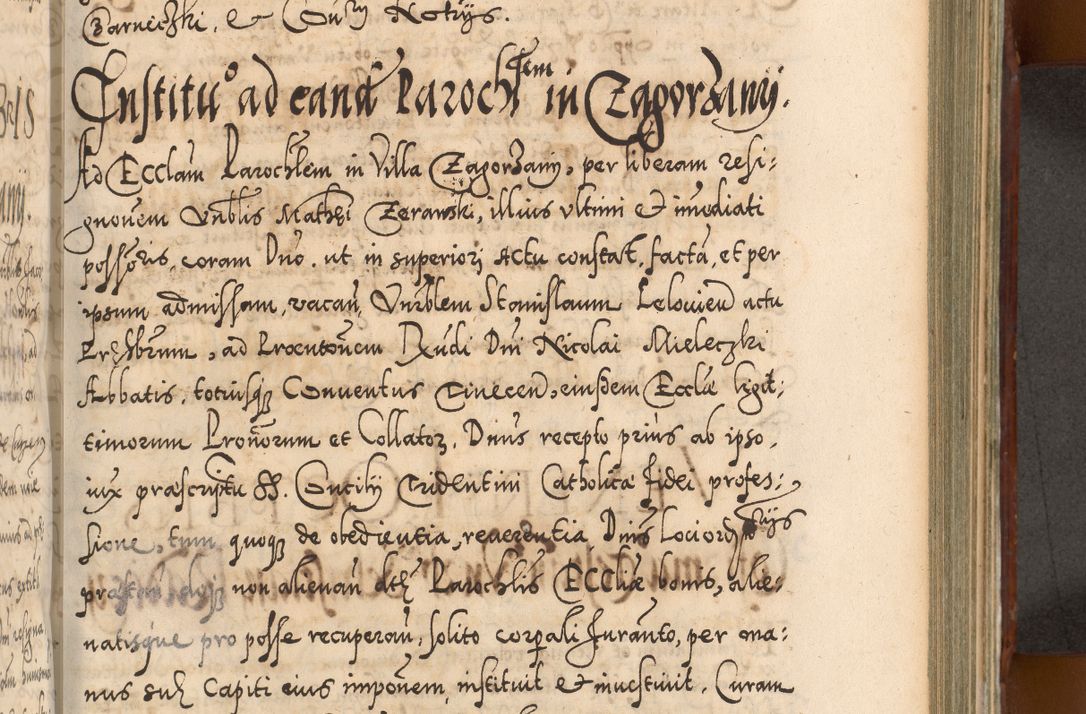 Barneczki, & Cur Notrijs.
Institu° ad eand Paroch̃lem in Zagorzany.
Ad Ecclam Parochlem in Villa Zagorzany, per liberam resi:
gnonem Vnblis Mathæi Zerawski, illius vltimi & imediati
possoris, coram Dno. ut in superiori Actu constat, facta, et per
ipsum admissam, vacan, Vnrblem Stanislaum Leloviens actu
Prsbrum, ad Præntonem Rndi Dni Nicolai Mieleczki
Abbatis, totiusq Conventus Tinecen, eiusdem Ecclæ legit:
timorum Pronorum et Collator. Dnus recepto prius ab ipso,
iux præscriptu SS. Concilij Tridentini Catholicæ fidei profes:
sione, tum quoq de obedientia, reverentia, Dnis Lociord rijs
præstan atq non alienan dtæ Parochlis Eccliæ bonis, alie:
natisque pro posse recuperan, solito corpali Iuranto, per ma:
nus suæ Capiti eius imponem, instituit & investiuit. Curam